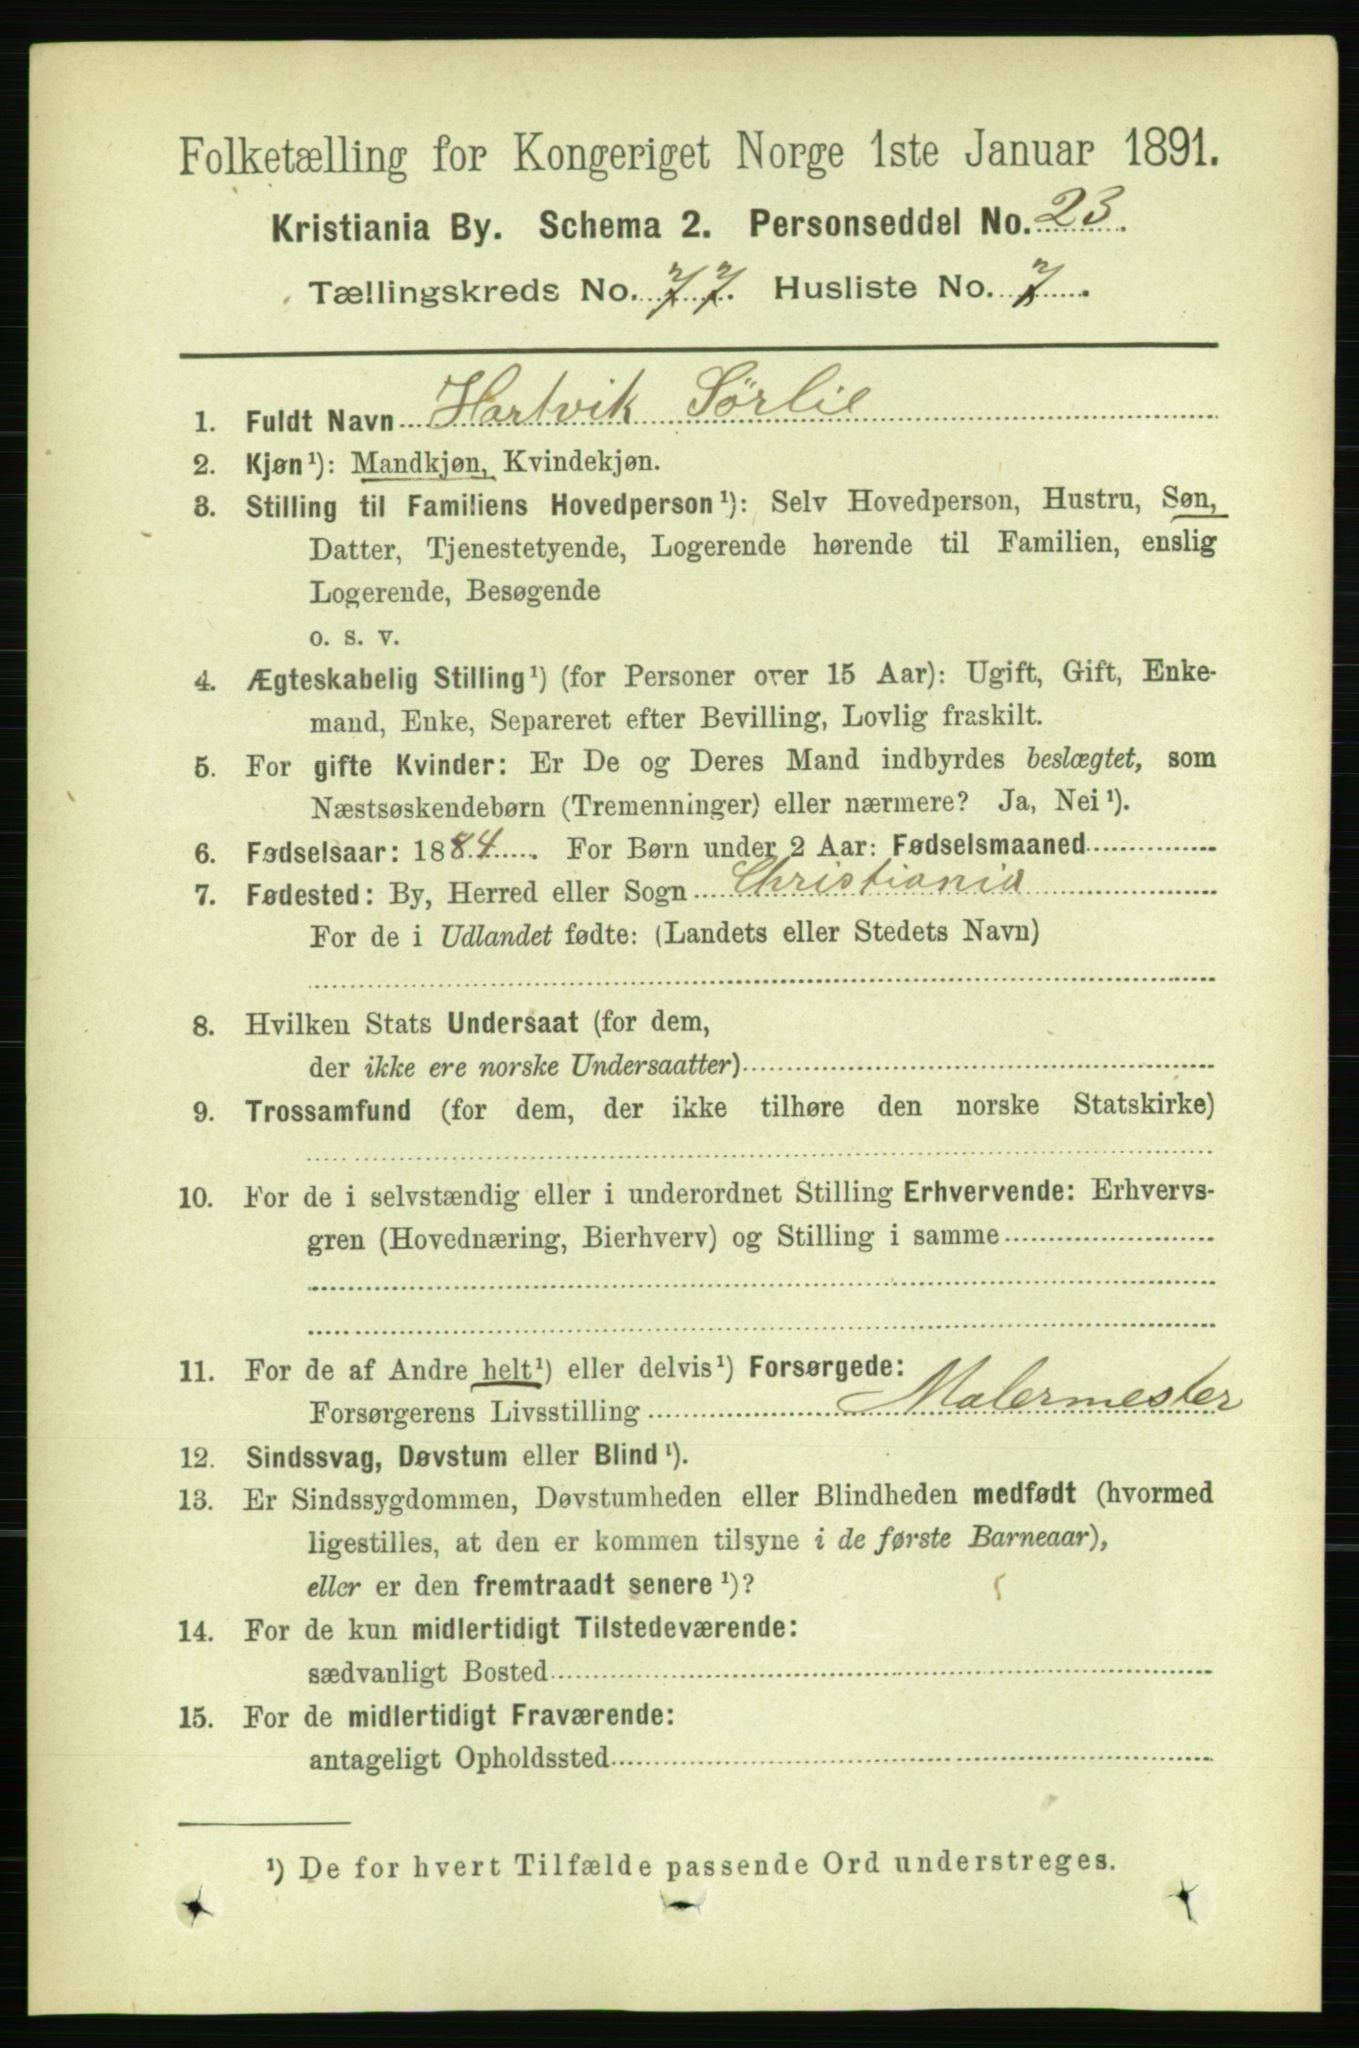 Folketælling for Kongeriget Norge 1ste Januar 1891.
Kristiania By. Schema 2. Personseddel No. 23.
Tællingskreds No. 77. Husliste No. 7.
1. Fuldt Navn Hartvik Sörlie
2. Kjøn¹): Mandkjøn, Kvindekjøn.
3. Stilling til Familiens Hovedperson¹): Selv Hovedperson, Hustru, Søn,
Datter, Tjenestetyende, Logerende hørende til Familien, enslig
Logerende, Besøgende
o. s. v.
4. Ægteskabelig Stilling¹) (for Personer over 15 Aar): Ugift, Gift, Enke-
mand, Enke, Separeret efter Bevilling, Lovlig fraskilt.
5. For gifte Kvinder: Er De og Deres Mand indbyrdes beslægtet, som
Næstsøskendebørn (Tremenninger) eller nærmere? Ja, Nei¹).
6. Fødselsaar: 1884. For Børn under 2 Aar: Fødselsmaaned
7. Fødested: By, Herred eller Sogn Christiania
For de i Udlandet fødte: (Landets eller Stedets Navn)
8. Hvilken Stats Undersaat (for dem,
der ikke ere norske Undersaatter)
9. Trossamfund (for dem, der ikke tilhøre den norske Statskirke)
10. For de i selvstændig eller i underordnet Stilling Erhvervende: Erhvervs-
gren (Hovednæring, Bierhverv) og Stilling i samme
11. For de af Andre helt¹) eller delvis¹) Forsørgede:
Forsørgerens Livsstilling Malermester
12. Sindssvag, Døvstum eller Blind¹).
13. Er Sindssygdommen, Døvstumheden eller Blindheden medfødt (hvormed
ligestilles, at den er kommen tilsyne i de første Barneaar),
eller er den fremtraadt senere¹)?
14. For de kun midlertidigt Tilstedeværende:
sædvanligt Bosted
15. For de midlertidigt Fraværende:
antageligt Opholdssted
¹) De for hvert Tilfælde passende Ord understreges.